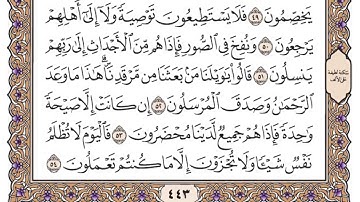 يَخِصِّمُونَ ﴿٤٩﴾ فَلَا يَسْتَطِيعُونَ تَوْصِيَةً وَلَآ إِلَىٰٓ أَهْلِهِمْ
يَرْجِعُونَ ﴿٥٠﴾ وَنُفِخَ فِى ٱلصُّورِ فَإِذَا هُم مِّنَ ٱلْأَجْدَاثِ إِلَىٰ رَبِّهِمْ
يَنسِلُونَ ﴿٥١﴾ قَالُوا۟ يَٰوَيْلَنَا مَنۢ بَعَثَنَا مِن مَّرْقَدِنَا ۜ ۗ هَٰذَا مَا وَعَدَ
ٱلرَّحْمَٰنُ وَصَدَقَ ٱلْمُرْسَلُونَ ﴿٥٢﴾ إِن كَانَتْ إِلَّا صَيْحَةً
وَٰحِدَةً فَإِذَا هُمْ جَمِيعٌ لَّدَيْنَا مُحْضَرُونَ ﴿٥٣﴾ فَٱلْيَوْمَ لَا تُظْلَمُ
نَفْسٌ شَيْـًٔا وَلَا تُجْزَوْنَ إِلَّا مَا كُنتُمْ تَعْمَلُونَ ﴿٥٤﴾
٤٤٣